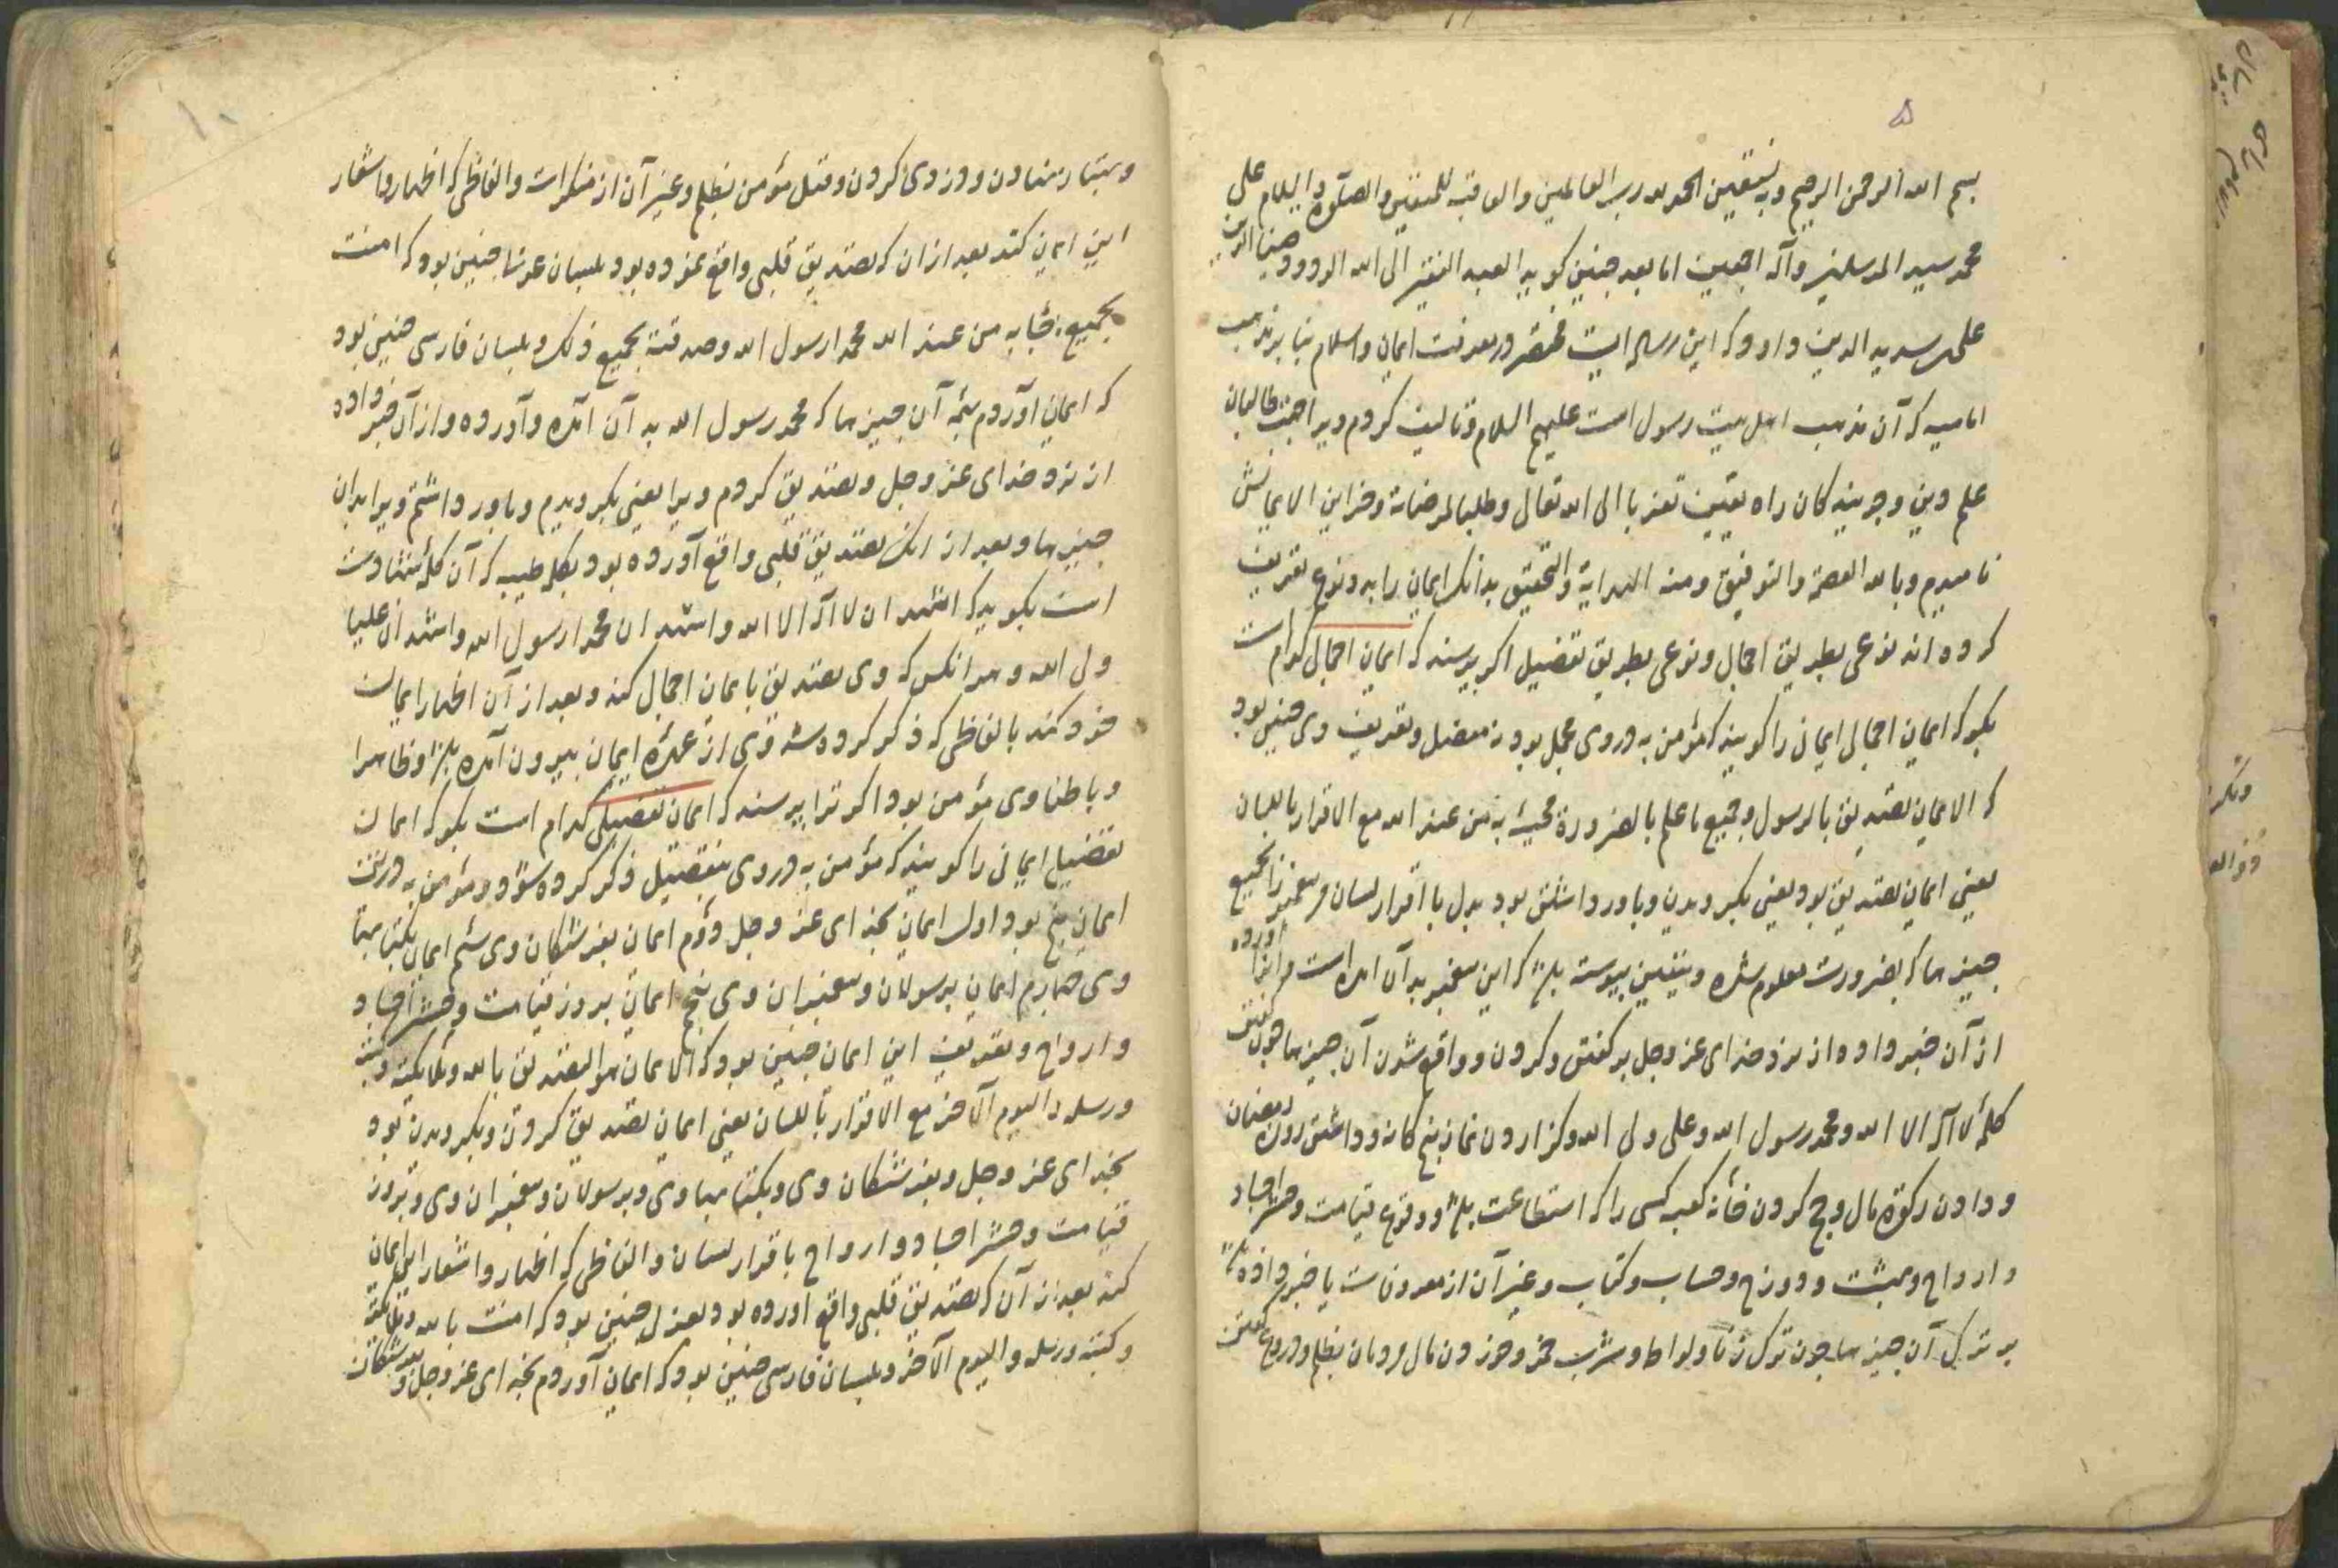 ۵
بسم الله الرحمن الرحیم وبه نستعین الحمد لله رب العالمین والعاقبة للمتقین والصلوة والسلام علی
محمد سید المرسلین وآله اجمعین اما بعد چنین کوید العبد الفقیر الی الله الودود ضیا الدین
علی سدید الدین داود که این رساله ایست مختصر در معرفت ایمان واسلام بنا بر مذهب
امامیه که آن مذهب اهل بیت رسول است علیهم السلام وتالیف کردم ویرا جهت طالبان
علم دین وجویندکان راه یقین تقربا الی الله تعالی وطلبا لمرضاته وخزاین الایمانش
نامیدم وبالله العصمة والتوفیق ومنه الهدایة والتحقیق بدانکه ایمان را بدو نوع تعریف
کرده اند نوعی بطریق اجمال ونوعی بطریق تفصیل اکر پرسند که ایمان اجمالی کدام است
بکو که ایمان اجمالی ایمانی را کویند که مؤمن به در وی مجمل بود نه مفصل وتعریف وی چنین بود
که الایمان تصدیق بالرسول وجمیع ما علم بالضرورة مجیئه به من عند الله مع الاقرار باللسان
یعنی ایمان تصدیق بود یعنی بکرویدن وباور داشتن بود بدل با اقرار لسان مر پیغمبر را بجمیع
چیزها که بضرورت معلوم شده وبیقین پیوسته باشد که این پیغمبر بدان آمده است وآنرا آورده
از آن خبر داده از نزد خدای عز وجل بر کفتن وکردن وواقع شدن آن چیزها چون کفتن
کلمه لا اله الا الله ومحمد رسول الله وعلی ولی الله وکزاردن نماز پنج کانه وداشتن روزه رمضان
ودادن زکوة مال وحج کردن خانه کعبه کسی را که استطاعت باشد ووقوع قیامت وحشر اجساد
وارواح وبهشت ودوزخ وحساب وکتاب وغیر آن از معروفات یا خبر داده باشد
بر ترک آن چیزها چون ترک زنا ولواط وشرب خمر وخوردن مال مردمان بظلم ودروغ کفتن
وبهتان نهادن ودزدی کردن وقتل مؤمن بظلم وغیر آن از منکرات والفاظی که اظهار واشعار
این ایمان کند بعد از آن که تصدیق قلبی واقع نموده بود بلسان عرب چنین بود که امنت
بجمیع ما جاء به من عند الله محمد رسول الله وصدقته بجمیع ذلک وبلسان فارسی چنین بود
که ایمان آوردم بهمه آن چیزها که محمد رسول الله به آن آمده وآورده واز آن خبر داده
از نزد خدای عز وجل وتصدیق کردم ویرا یعنی بکرویدم وباور داشتم ویرا بدان
چیزها وبعد از آنکه تصدیق قلبی واقع آورده بود بکلمه طیبه که آن کلمه شهادت
است بکوید که اشهد ان لا اله الا الله واشهد ان محمدا رسول الله واشهد ان علیا
ولی الله وهر آنکس که وی تصدیق بایمان اجمالی کند وبعد از آن اظهار ایمان
خود کند بالفاظی که ذکر کرده شد وی از عهده ایمان بیرون آمده باشد وظاهرا
وباطنا وی مؤمن بود اکر ترا پرسند که ایمان تفصیلی کدام است بکو که ایمان
تفصیلی ایمانی را کویند که مؤمن به در وی بتفصیل ذکر کرده شود ومؤمن به در تفصیل
ایمان پنج بود اول ایمان بخدای عز وجل دوم ایمان بفرشتکان وی سیم ایمان بکتابهای
وی چهارم ایمان برسولان وپیغمبران وی پنجم ایمان بروز قیامت وحشر اجساد
وارواح وتعریف این ایمان چنین بود که الایمان هو التصدیق بالله وملایکته وکتبه
ورسله والیوم الآخر مع الاقرار باللسان یعنی ایمان تصدیق کردن وبکرویدن بود
بخدای عز وجل وبفرشتکان وی وبکتابهای وی وبرسولان وپیغمبران وی وبروز
قیامت وحشر اجساد وارواح باقرار لسان والفاظی که اظهار واشعار این ایمان
کند بعد از آن که تصدیق قلبی واقع آورده بود بعربی چنین بود که امنت بالله وملایکته
وکتبه ورسله والیوم الآخر وبلسان فارسی چنین بود که ایمان آوردم بخدای عز وجل وبفرشتکان